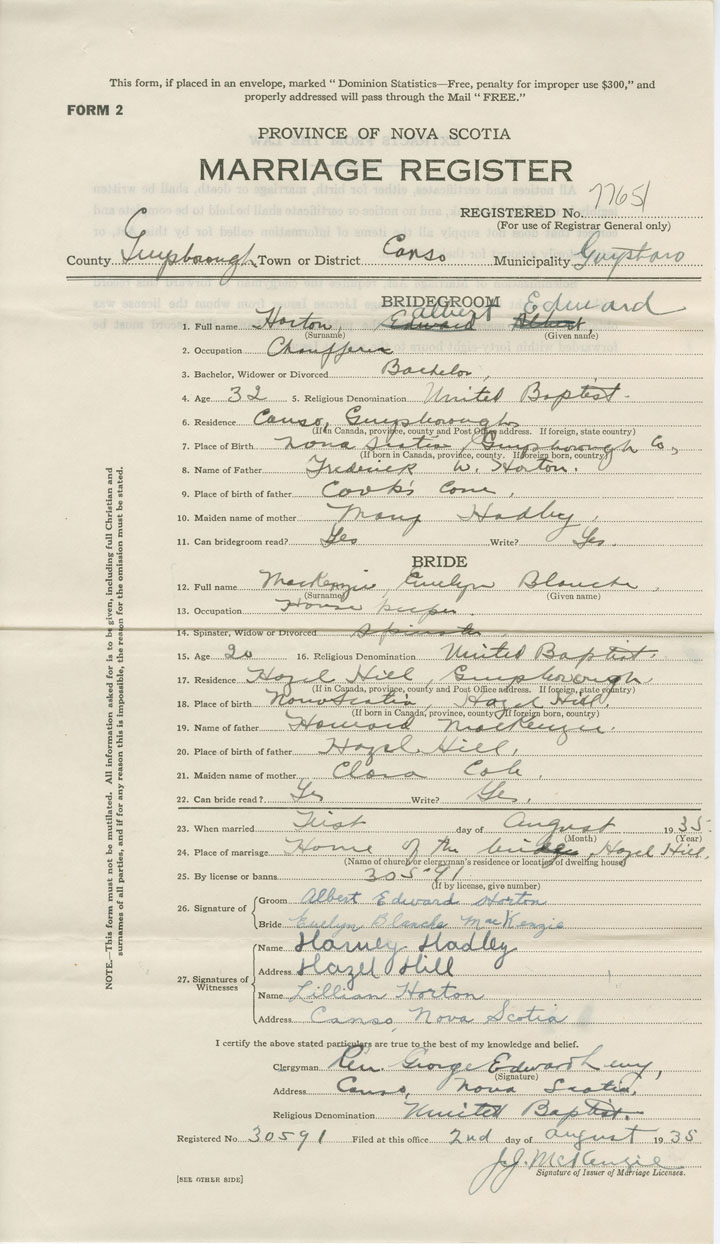 This form, if placed in an envelope, marked " Dominion Statistics—Free, penalty for improper use $300," and
properly addressed will pass through the Mail " FREE."
FORM 2
PROVINCE OF NOVA SCOTIA
MARRIAGE REGISTER
REGISTERED No. 77651
(For use of Registrar General only)
County Guysborough Town or District Canso Municipality Guysboro
BRIDEGROOM
Albert Edward
1. Full name Horton, Edward Albert,
(Surname) (Given name)
2. Occupation Chauffeur
3. Bachelor, Widower or Divorced Bachelor,
4. Age 32 5. Religious Denomination United Baptist.
6. Residence Canso, Guysborough
(If in Canada, province, county and Post Office address. If foreign, state country)
7. Place of Birth Nova Scotia, Guysborough Co,
(If born in Canada, province, county. If foreign born, country)
8. Name of Father Frederick W. Horton.
9. Place of birth of father Cook's Cove,
10. Maiden name of mother Mary Hadley,
11. Can bridegroom read? Yes Write? Yes.
BRIDE
12. Full name MacKenzie, Evelyn Blanche,
(Surname) (Given name)
13. Occupation House keeper.
14. Spinster, Widow or Divorced Spinster,
15. Age 20 16. Religious Denomination United Baptist.
17. Residence Hazel Hill, Guysborough
(If in Canada, province, county and Post Office address. If foreign, state country)
18. Place of birth Nova Scotia, Hazel Hill,
(If born in Canada, province, county. If foreign born, country)
19. Name of father Howard MacKenzie.
20. Place of birth of father Hazel Hill,
21. Maiden name of mother Clara Cole.
22. Can bride read? Yes Write? Yes.
23. When married First day of August 1935.
(Month) (Year)
24. Place of marriage Home of the bride, Hazel Hill.
(Name of church or clergyman's residence or location of dwelling house)
25. By license or banns. 30591
(If by license, give number)
26. Signature of
Groom Albert Edward Horton
Bride Evelyn Blanche MacKenzie
27. Signatures of Witnesses
Name Harvey Hadley
Address Hazel Hill
Name Lillian Horton
Address Canso, Nova Scotia
I certify the above stated particulars are true to the best of my knowledge and belief.
Clergyman Rev. George Edward Levy,
(Signature)
Address Canso, Nova Scotia.
Religious Denomination United Baptist.
Registered No. 30591 Filed at this office 2nd day of August 1935
J.J. McKenzie
Signature of Issuer of Marriage Licenses.
[SEE OTHER SIDE]
NOTE.—This form must not be mutilated. All information asked for is to be given, including full Christian and
surnames of all parties, and if for any reason this is impossible, the reason for the omission must be stated.